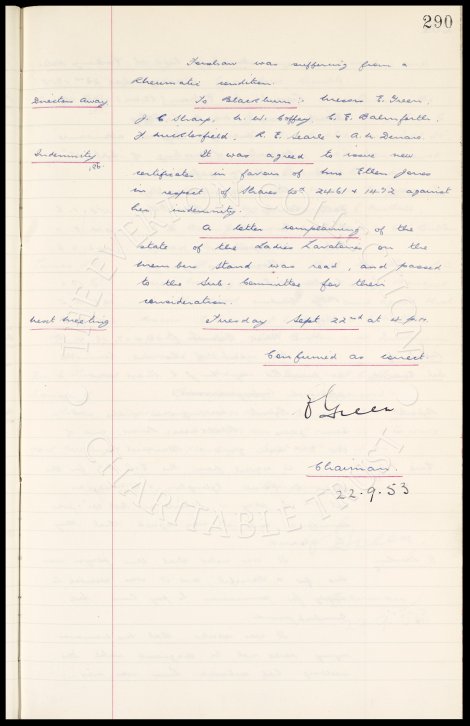 290
Forshaw was suffering from a
Rheumatic condition.
Directors Away To Blackburn:- Messrs E. Green,
J. C. Sharp, N. W. Coffey, C. E. Balmforth,
R. E. Searle & A. W. Denaro.
Indemnity It was agreed to issue new
certificates in favour of Mrs Ellen Jones
in respect of Shares Nos 2461 & 1472 against
her indemnity.
A letter complaining of the
state of the Ladies Lavatories on the
Members Stand was read, and passed
to the Sub-Committee for their
consideration.
Next Meeting Tuesday Sept 22nd at 4 p.m.
Confirmed as correct.
E Green
Chairman.
22.9.53
THE EVERTON COLLECTION
CHARITABLE TRUST